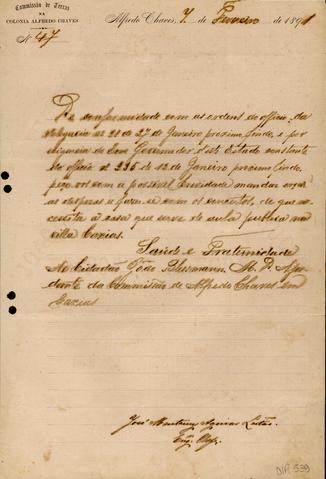 Commissão de Terras
NA
COLONIA ALFREDO CHAVES
Nº 47
Alfredo Chaves, 7 de Fevereiro de 1891
De conformidade com as ordens do officio da
de 27 de Janeiro proximo findo, e por
do Governador d'este Estado constante
do officio nº 235 de 12 de Janeiro proximo findo,
peço vos com a possivel brevidade mandar orçar
as despezas a fazer-se com os concertos, de que ne-
cessita a casa que serve de aula publica na
villa Caxias.
Saude e Fraternidade
Ao Cidadão João M. D. Aju-
dante da Commissão de Alfredo Chaves em
Caxias
José Montaury Aguiar Leitão
Eng. Chefe
DIP 539